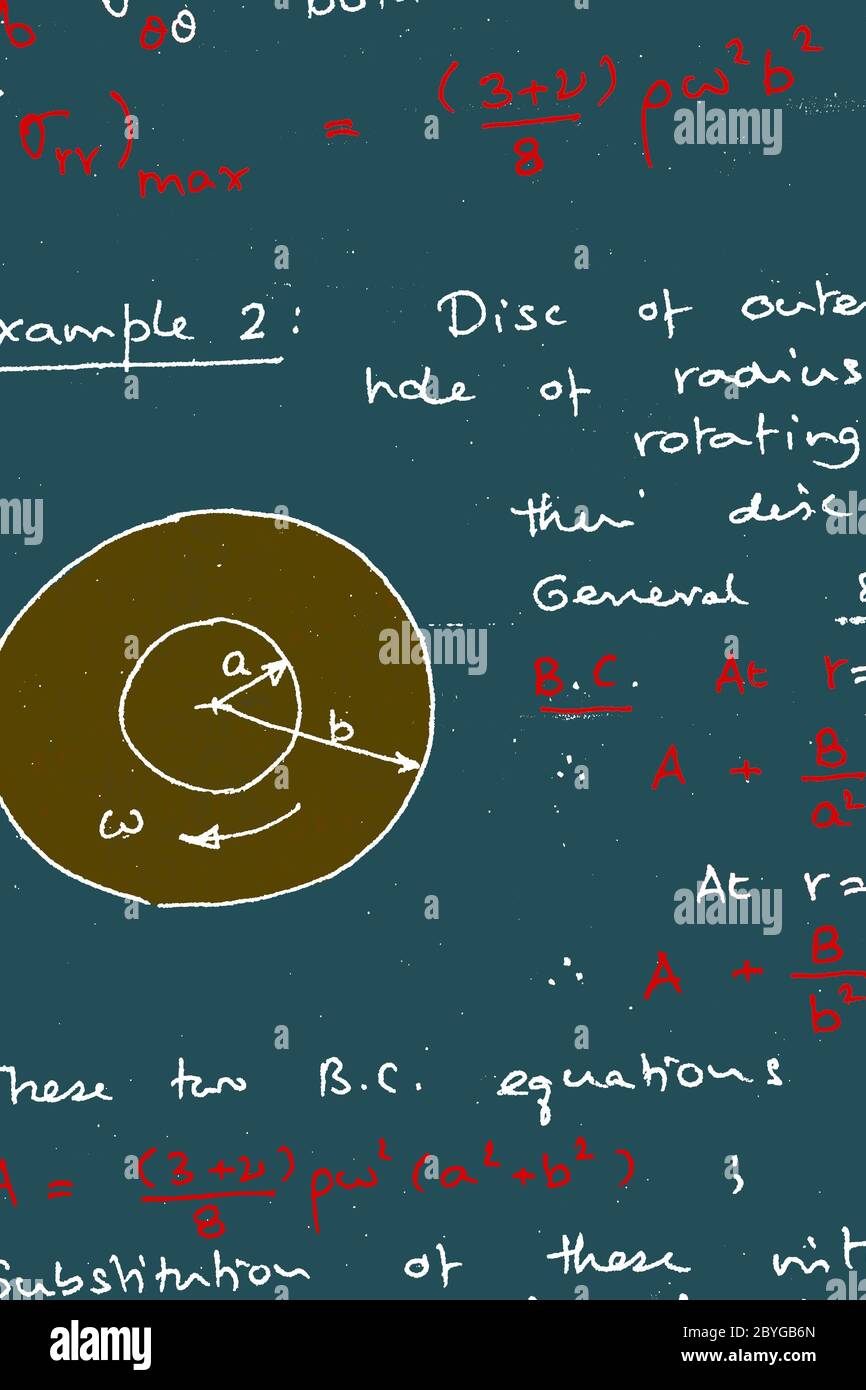 σθθ
σrr)max = (3+ν)/8 ρω²b²
xample 2: Disc of oute
hole of radius
rotating
then disc
General
a
B.C. At r=
b
∴ A + B/a²
ω
At r=
∴ A + B/b²
hese two B.C. equations
A = (3+ν)/8 ρω²(a²+b²) ;
Substitution of these
alamy
Image ID: 2BYGB6N
www.alamy.com